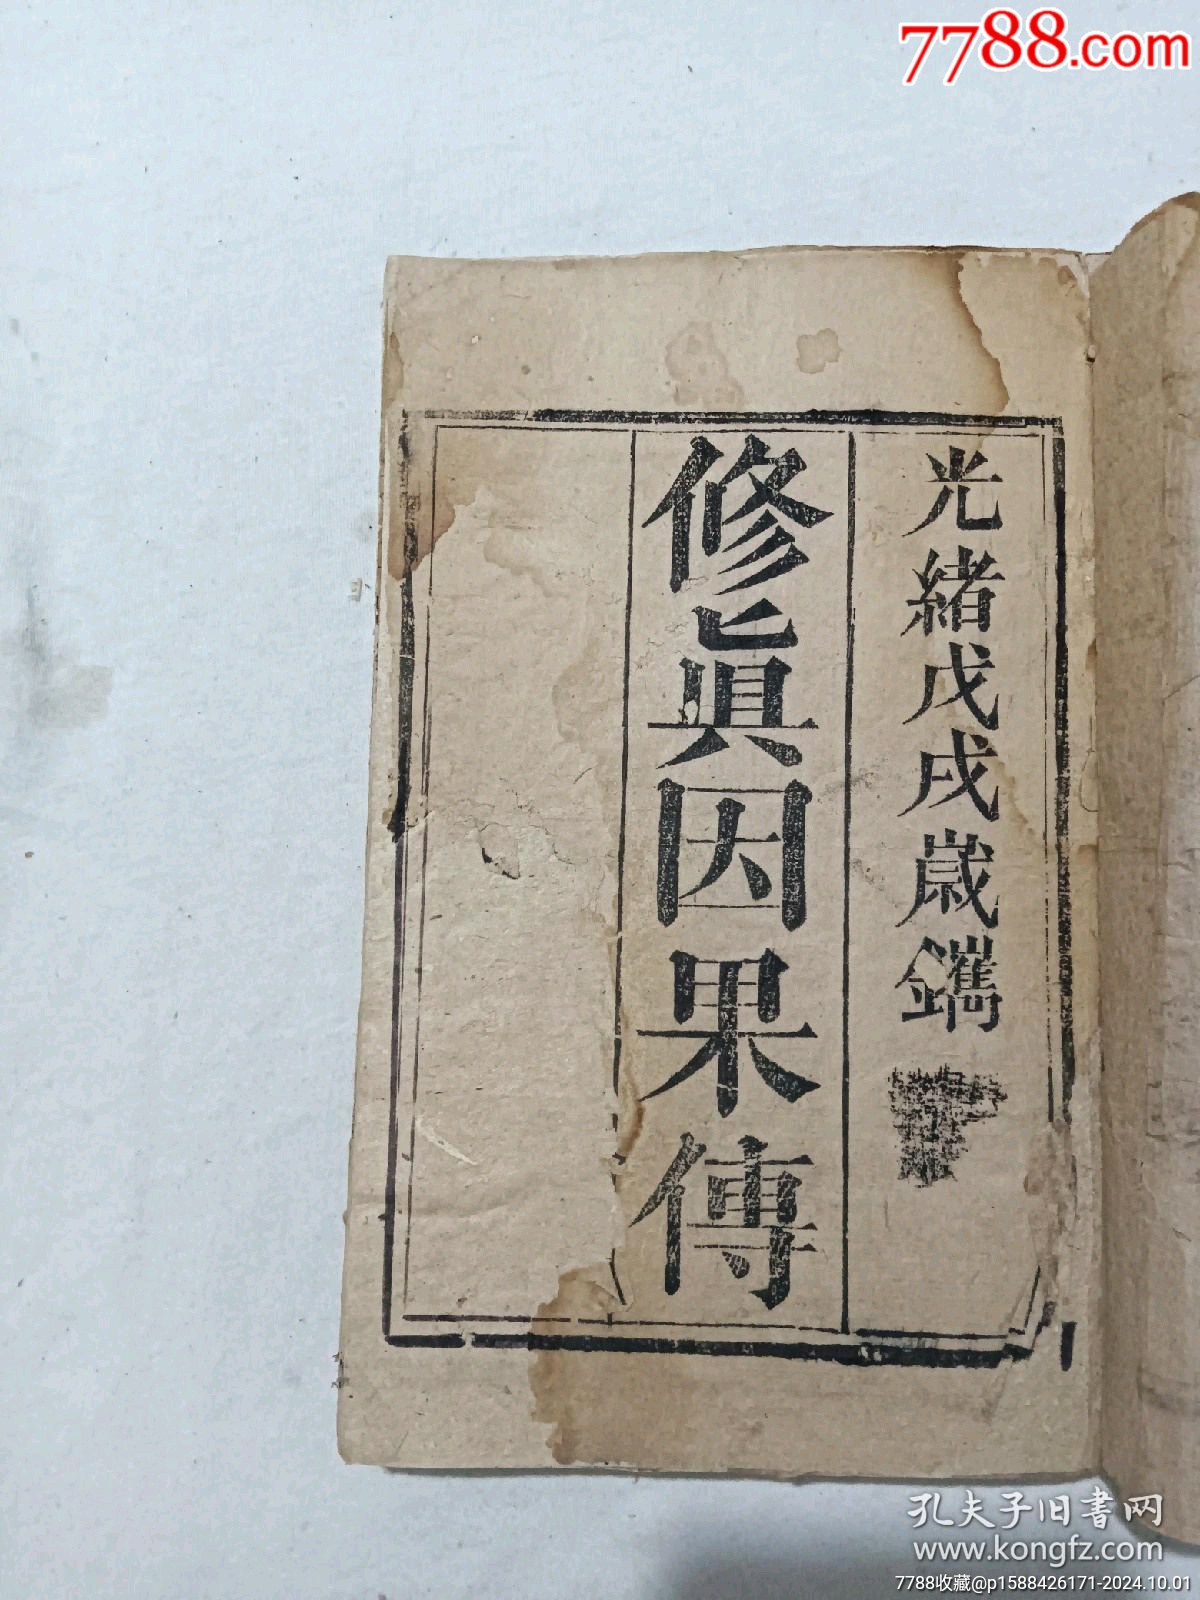 7788.com
光緒戊戌歲鐫
修眞因果傳
孔夫子旧书网
www.kongfz.com
7788收藏@p1588426171-2024.10.01